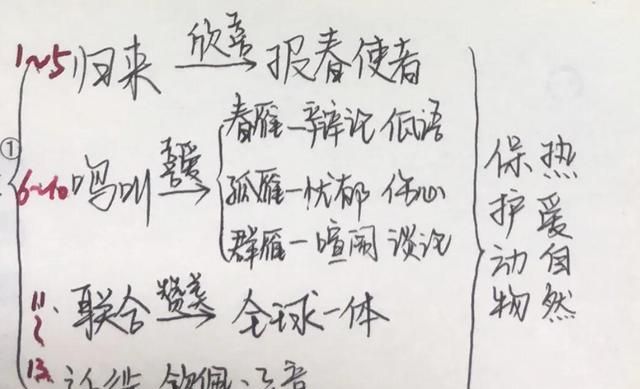 1~5 归来 欣喜 报春使者
①
春雁—辩论 低语
6~10 鸣叫 喜爱
孤雁—忧郁 伤心
群雁—喧闹 谈论
11~13 联合 赞美 全球一体
迁徙 钦佩
保护动物
热爱自然